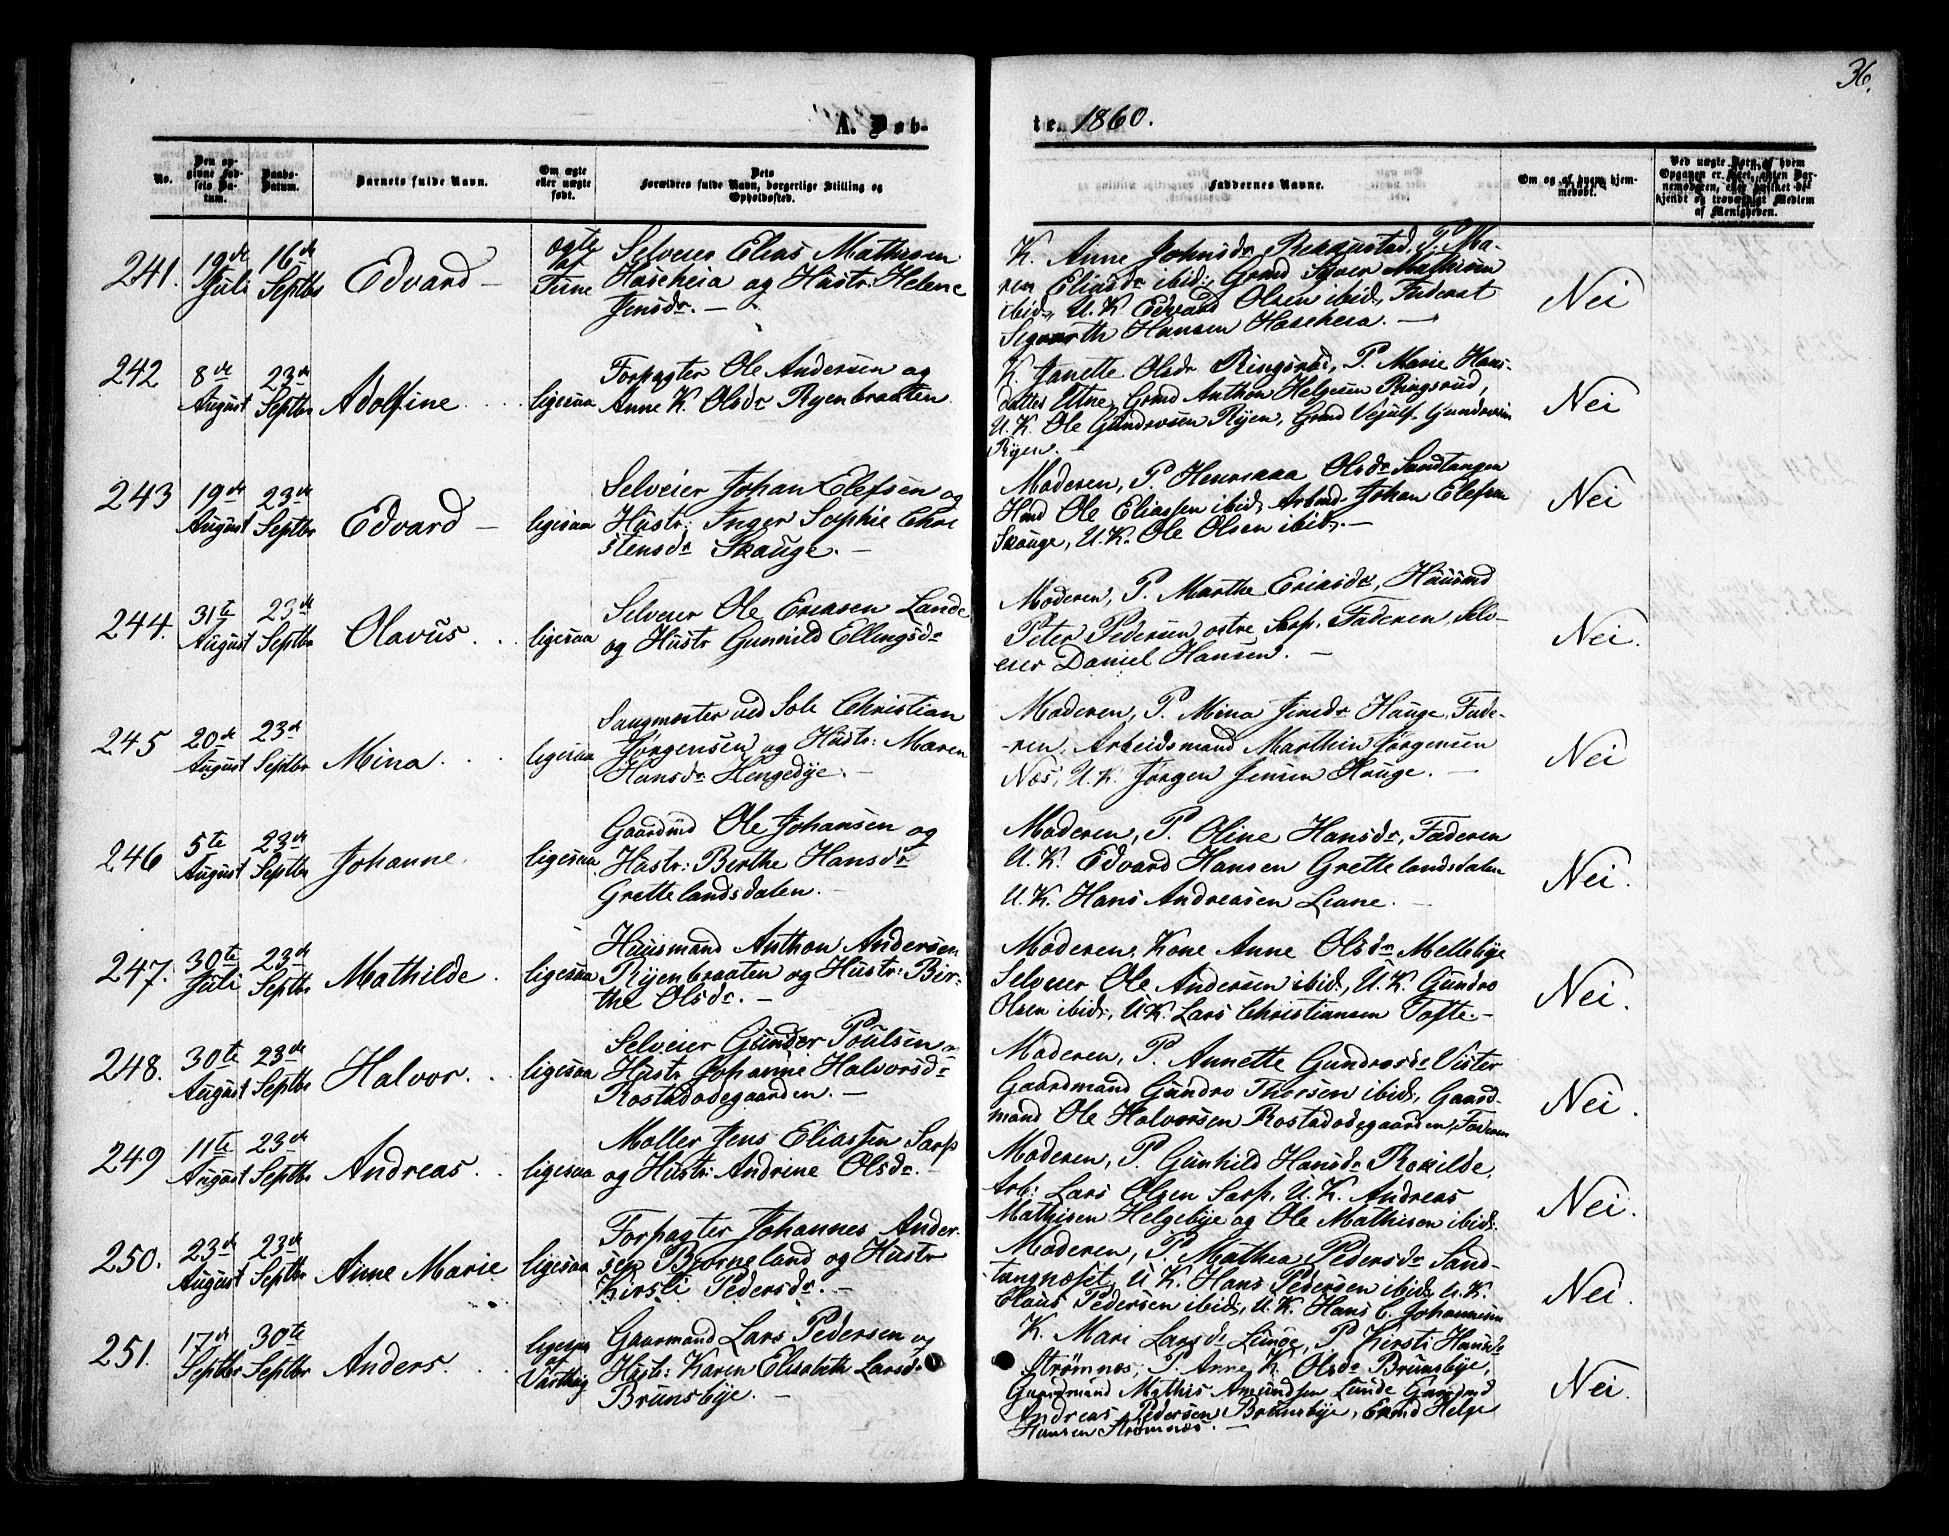 36.
A. Døb-
te. 1860.
No.
Den op-
givne Fød-
sels Da-
tum.
Daabs-
Datum.
Barnets fulde Navn.
Om ægte
eller uægte
født.
Dets
Forældres fulde Navn, borgerlige Stilling og
Opholdssted.
Faddernes Navne.
Om og af hvem hjem-
medøbt.
Ved uægte Børn, af hvem
Opgaven er skeet, enten Bar-
nemoderen, eller hvilket be-
kjendt og troværdigt Medlem
af Menigheden.
241. 19de Juli 16de Septbr Edvard — ægte af Tune
Selveier Elias Mathisen
Haseheia og Hustr: Helene
Jensdr. —
K. Anne Johnsdr P. Ma-
ren Eliasdr ibid:, Grmd Mathisen
ibid., U.K. Edvard Olsen ibid,
Hansen Haseheia. —
Nei
242 8de August 23de Septbr Adolfine ligesaa
Forpagter Ole Andersen og
Anne K. Olsdr Ryenbraaten
K. Janette Olsdr Ringsrud, P. Marie Hans-
datter Utne, Grmd Anthon Helgesen Ringsrud,
U.K. Ole Gundrosen Ryen, Grmd Gundrosen
Ryen. —
Nei
243 19de August 23de Septbr Edvard — ligesaa
Selveier Johan Elefsen og
Hustr: Inger Sophie Chri
stensdr Skauge. —
Moderen, P. Olsdr Sandtangen
Ole Eliassen ibid, Arbmd Johan Elefsen
Skauge, U.K. Ole Olsen ibid. —
Nei
244. 31te August 23de Septbr Olavus. ligesaa
Selveier Ole Ericsen Lande
og Hustr Gunnild Ellingsdr
Moderen, P. Marthe Ericsdr, Huusmd
Peter Pedersen østre Sarp, Faderen, Selv-
eier Daniel Hansen. —
Nei.
245 20de August 23d Septbr Mina. ligesaa
Saugmester ved Sole Christian
Jørgensen og Hustr: Maren
Hansdr Hengedye. —
Moderen, P. Mina Jensdr Hauge, Fade-
ren, Arbeidsmand Marthin Jørgensen
Næs, U.K. Jørgen Jensen Hauge. —
Nei
246 5te August 23de Septbr Johanne. ligesaa
Gaardmd Ole Johansen og
Hustr: Berthe Hansdr
Grettelandsdalen. —
Moderen, P. Oline Hansdr, Faderen
U.K. Edvard Hansen Grettelandsdalen
U.K. Hans Andreasen Leane. —
Nei.
247. 30te Juli 23de Septbr Mathilde. ligesaa
Huusmand Anthon Andersen
Ryenbraaten og Hustr: Bir-
the Olsdr. —
Moderen, Kone Anne Olsdr Mellebye
Selveier Ole Andersen ibid., U.K. Gundro
Olsen ibid:, U.K. Lars Christiansen Tofte. —
Nei.
248. 30te August 23de Septbr Halvor. ligesaa
Selveier Gunder Poulsen og
Hustr Johanne Halvorsdr
Rostadødegaarden. —
Moderen, P. Annette Gundrosdr Vister
Gaardmand Gundro Thorsen ibid., Gaard-
mand Ole Halvorsen Rostadødegaarden, Faderen
Nei.
249 11te August 23de Septbr Andreas. ligesaa
Møller Jens Eliassen Sarp
og Hustr: Andrine Olsdr. —
Moderen, P. Gunhild Hansdr Roxilde,
Arb: Lars Olsen Sarp, U.K. Andreas
Mathisen Helgebye og Ole Mathisen ibid:
Nei.
250. 23de August 23de Septbr Anne Marie ligesaa
Forpagter Johannes Ander-
sen Bjørneland og Hustr
Kirsti Pedersdr. —
Moderen, P. Mathea Pedersdr Sand-
tangnæset, U.K. Hans Pedersen ibid, U.K.
Claus Pedersen ibid., U.K. Hans C. Johannesen
Nei.
251. 17de Septbr 30te Septbr Anders. ligesaa af Varteig
Gaarmand Lars Pedersen og
Hustr: Karen Elisabeth Larsdr
Brunsbye. —
K. Mari Larsdr Lunde, P. Kirsti Hansdr
Strømnes, P. Anne K. Olsdr Brunsbye,
Gaardmand Mathis Amundsen Lunde
Andreas Pedersen Brunsbye, Helge
Hansen Strømnæs. —
Nei.